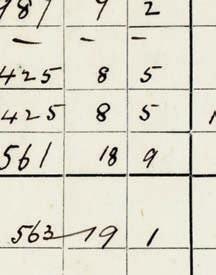 987 9 2
— — —
425 8 5
425 8 5
561 18 9
563 19 1